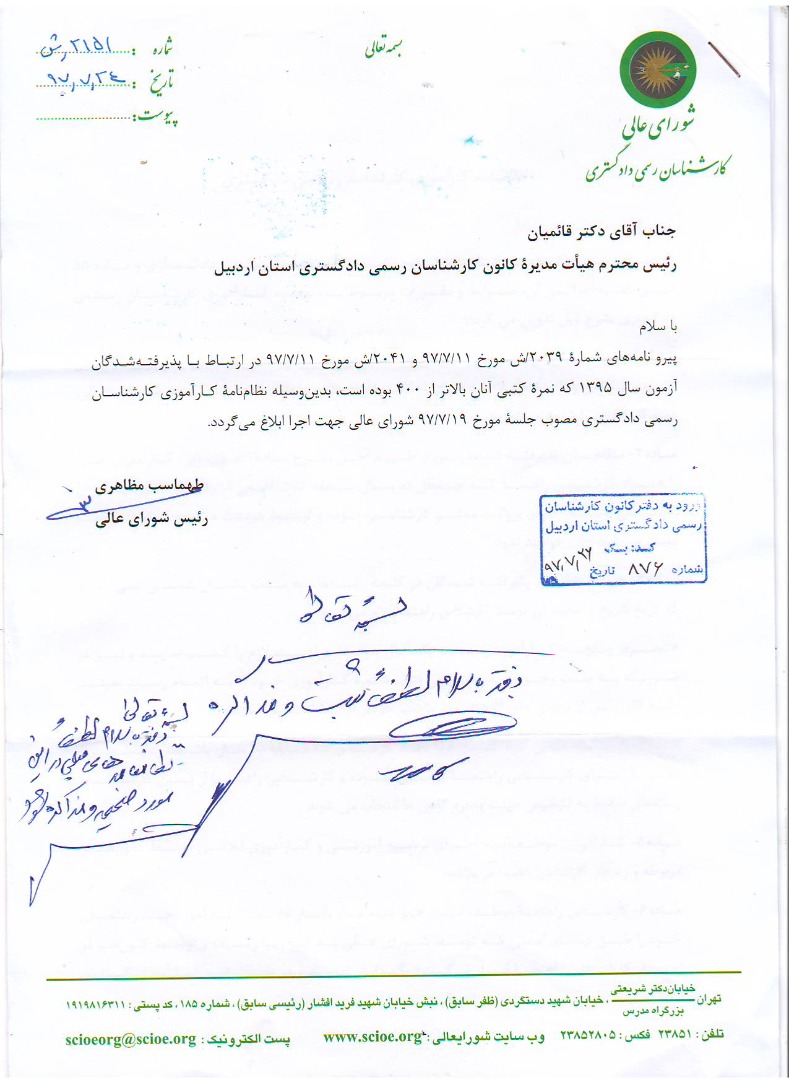 بسمه تعالی
شماره : ۲۱۵۱/ش
تاریخ : ۹۷/۷/۲۴
پیوست :
شورای عالی
کارشناسان رسمی دادگستری
جناب آقای دکتر قائمیان
رئیس محترم هیأت مدیرهٔ کانون کارشناسان رسمی دادگستری استان اردبیل
با سلام
پیرو نامه‌های شمارهٔ ۲۰۳۹/ش مورخ ۹۷/۷/۱۱ و ۲۰۴۱/ش مورخ ۹۷/۷/۱۱ در ارتباط با پذیرفته‌شدگان
آزمون سال ۱۳۹۵ که نمرهٔ کتبی آنان بالاتر از ۴۰۰ بوده است، بدین‌وسیله نظام‌نامهٔ کارآموزی کارشناسان
رسمی دادگستری مصوب جلسهٔ مورخ ۹۷/۷/۱۹ شورای عالی جهت اجرا ابلاغ می‌گردد.
طهماسب مظاهری
رئیس شورای عالی
ورود به دفتر کانون کارشناسان
رسمی دادگستری استان اردبیل
شماره ۸۷۶ تاریخ ۹۷/۷/۲۶
بسمه تعالی
دفتر با سلام لطفاً ثبت و مذاکره
بسمه تعالی
دفتر با سلام لطفاً
تهران خیابان دکتر شریعتی / بزرگراه مدرس ، خیابان شهید دستگردی (ظفر سابق) ، نبش خیابان شهید فرید افشار (رئیسی سابق) ، شماره ۱۸۵ ، کد پستی : ۱۹۱۹۸۱۶۳۱۱
تلفن : ۲۳۸۵۱ فکس : ۲۳۸۵۲۸۰۵ وب سایت شورایعالی : www.scioe.org پست الکترونیک : scioeorg@scioe.org